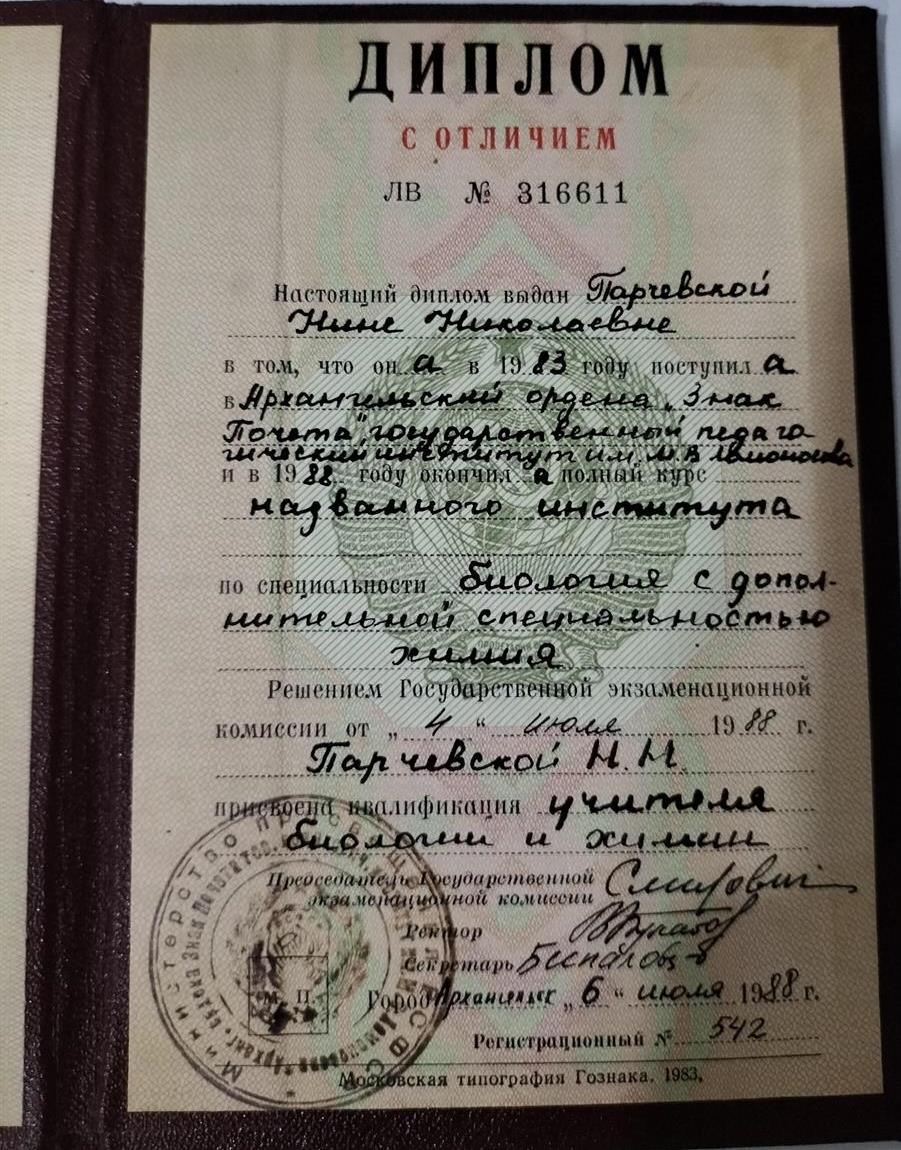 ДИПЛОМ
С ОТЛИЧИЕМ
ЛВ № 316611
Настоящий диплом выдан Парчевской
Нине Николаевне
в том, что она в 1983 году поступила
в Архангельский ордена „Знак
Почета", государственный педаго
гический институт им. М.В. Ломоносова
и в 1988 году окончила полный курс
названного института
по специальности биология с допол-
нительной специальностью
химия
Решением Государственной экзаменационной
комиссии от „4" июля 1988 г.
Парчевской Н.Н.
присвоена квалификация учителя
биологии и химии
Председатель Государственной
экзаменационной комиссии
Ректор
Секретарь
М. П.
Город Архангельск „6" июля 1988 г.
Регистрационный № 542
Московская типография Гознака. 1983.